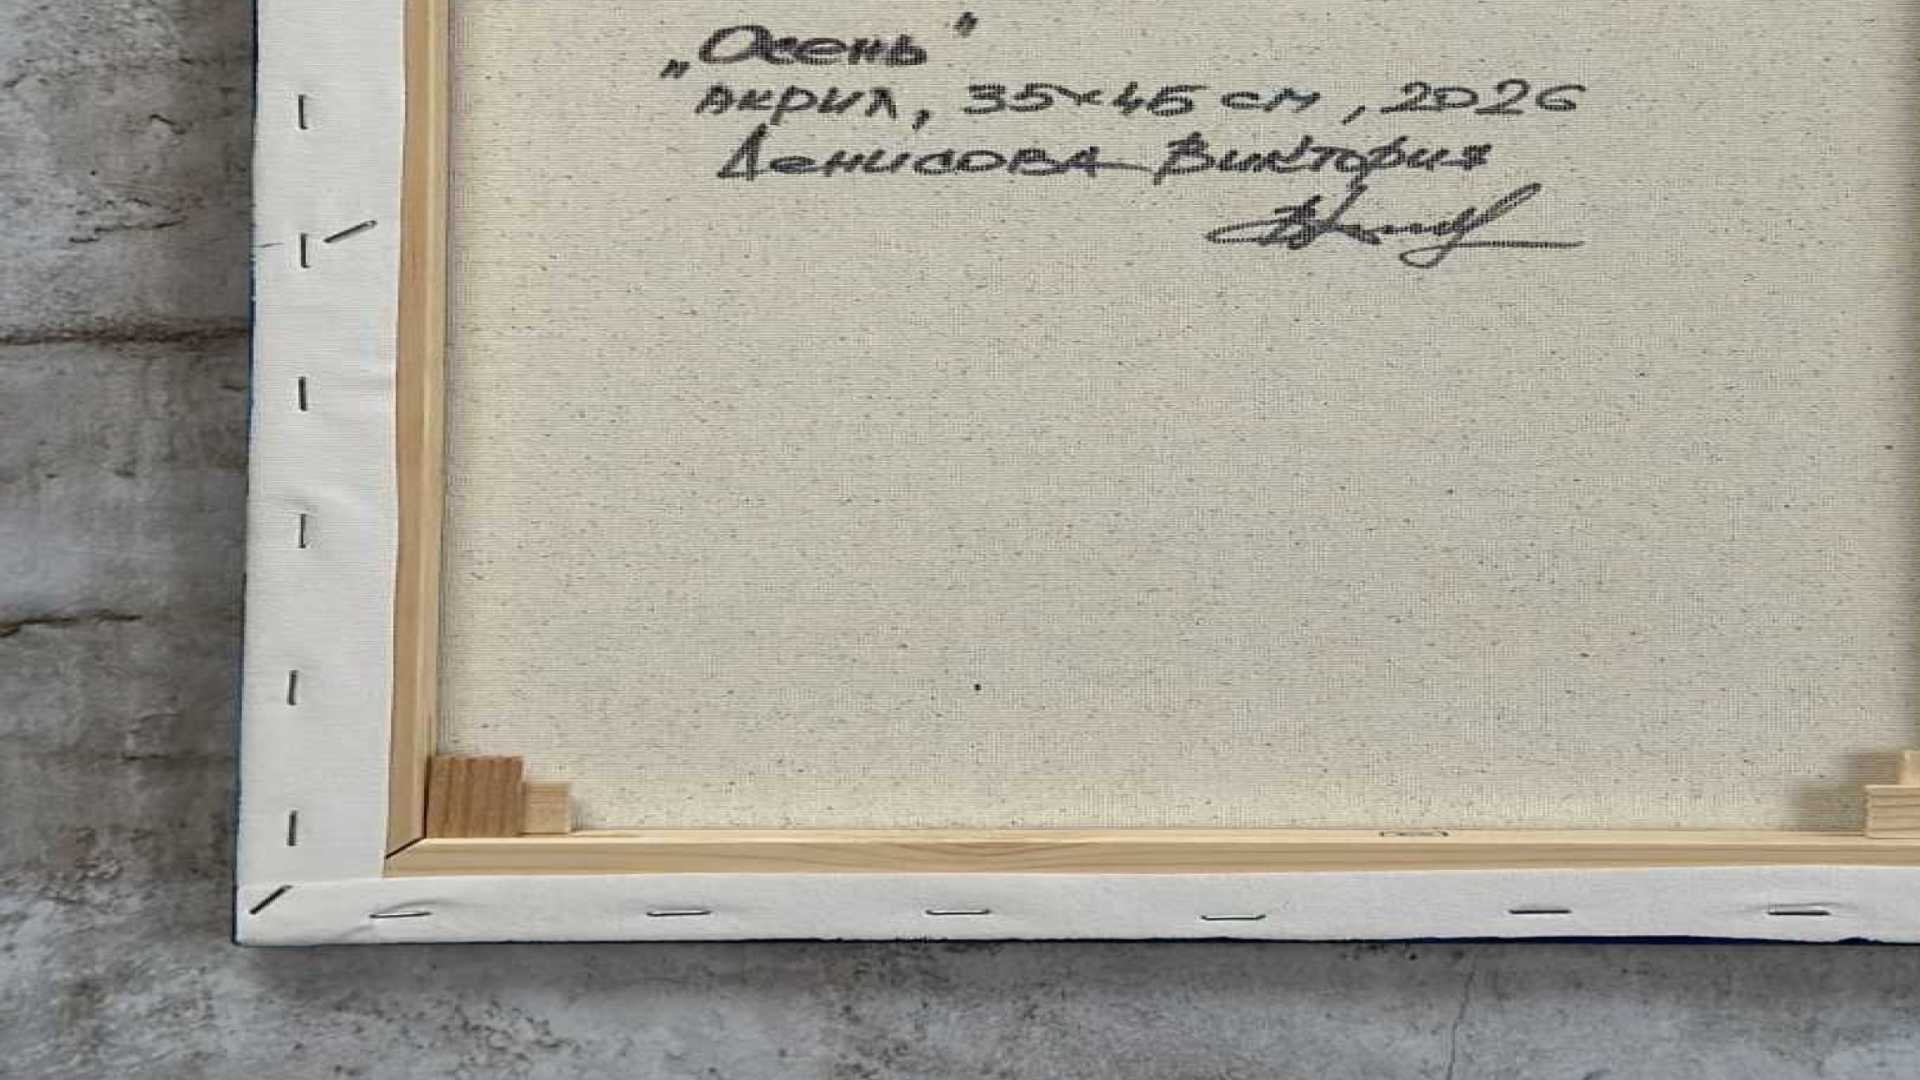 „Осень"
Акрил, 35×45 см, 2026
Денисова Виктория